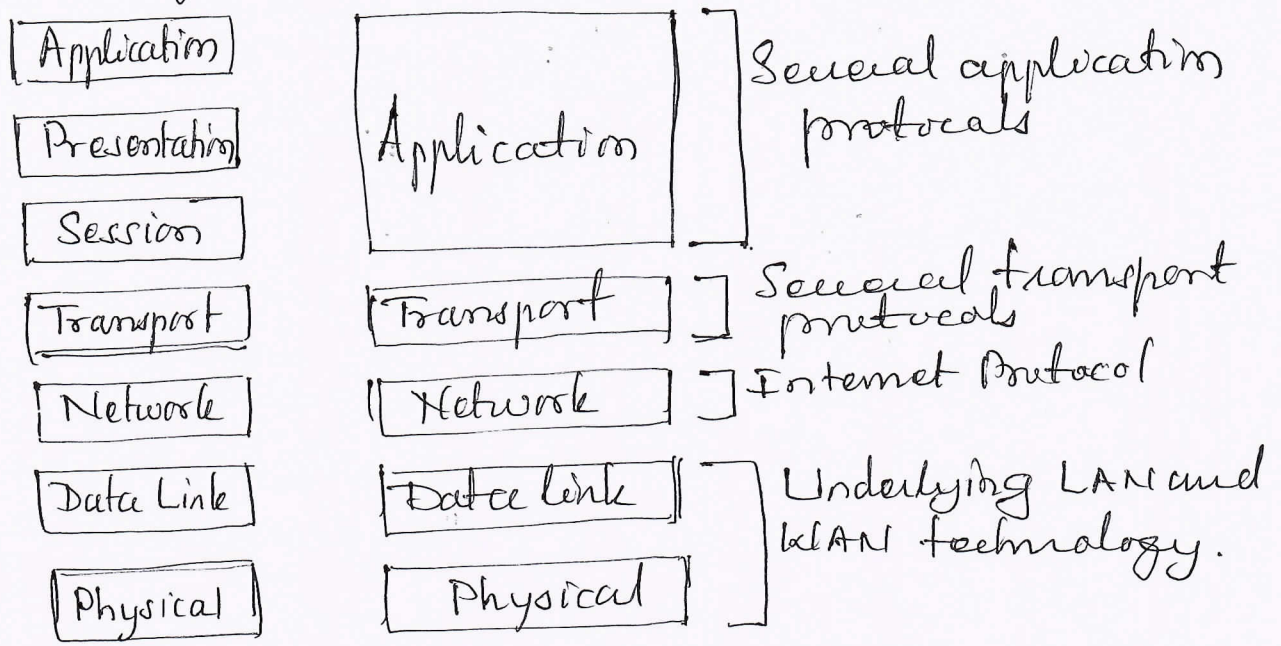 Application
Presentation
Session
Transport
Network
Data Link
Physical
Application
Transport
Network
Data link
Physical
Several application
protocals
Several transport
protocals
Internet Protocol
Underlying LAN and
WAN technology.